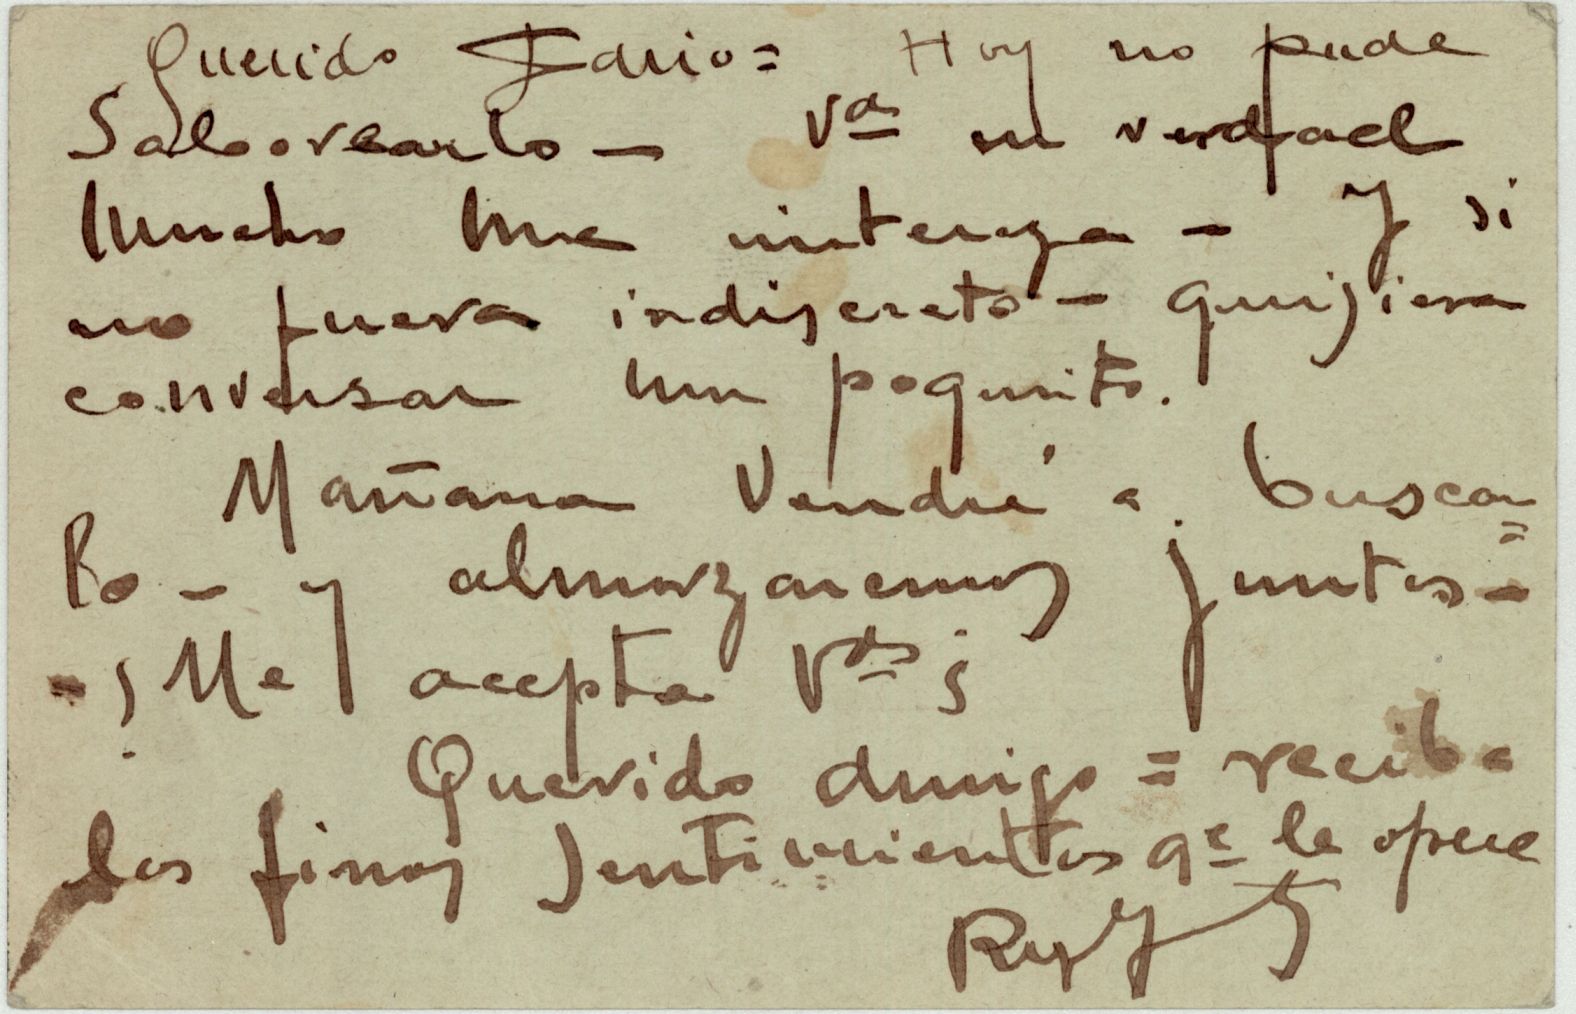 Querido Idario= Hoy no pude
Saborearlo — Vd en verdad
Mucho me intereza — Y si
no fuera indiscreto — quisiera
conversar un poquito.
Mañana Vendré a buscar=
lo — y almorzaremos juntos —
— ¿Me acepta Vds?
Querido amigo = reciba
los finos Sentimientos qe le ofrece